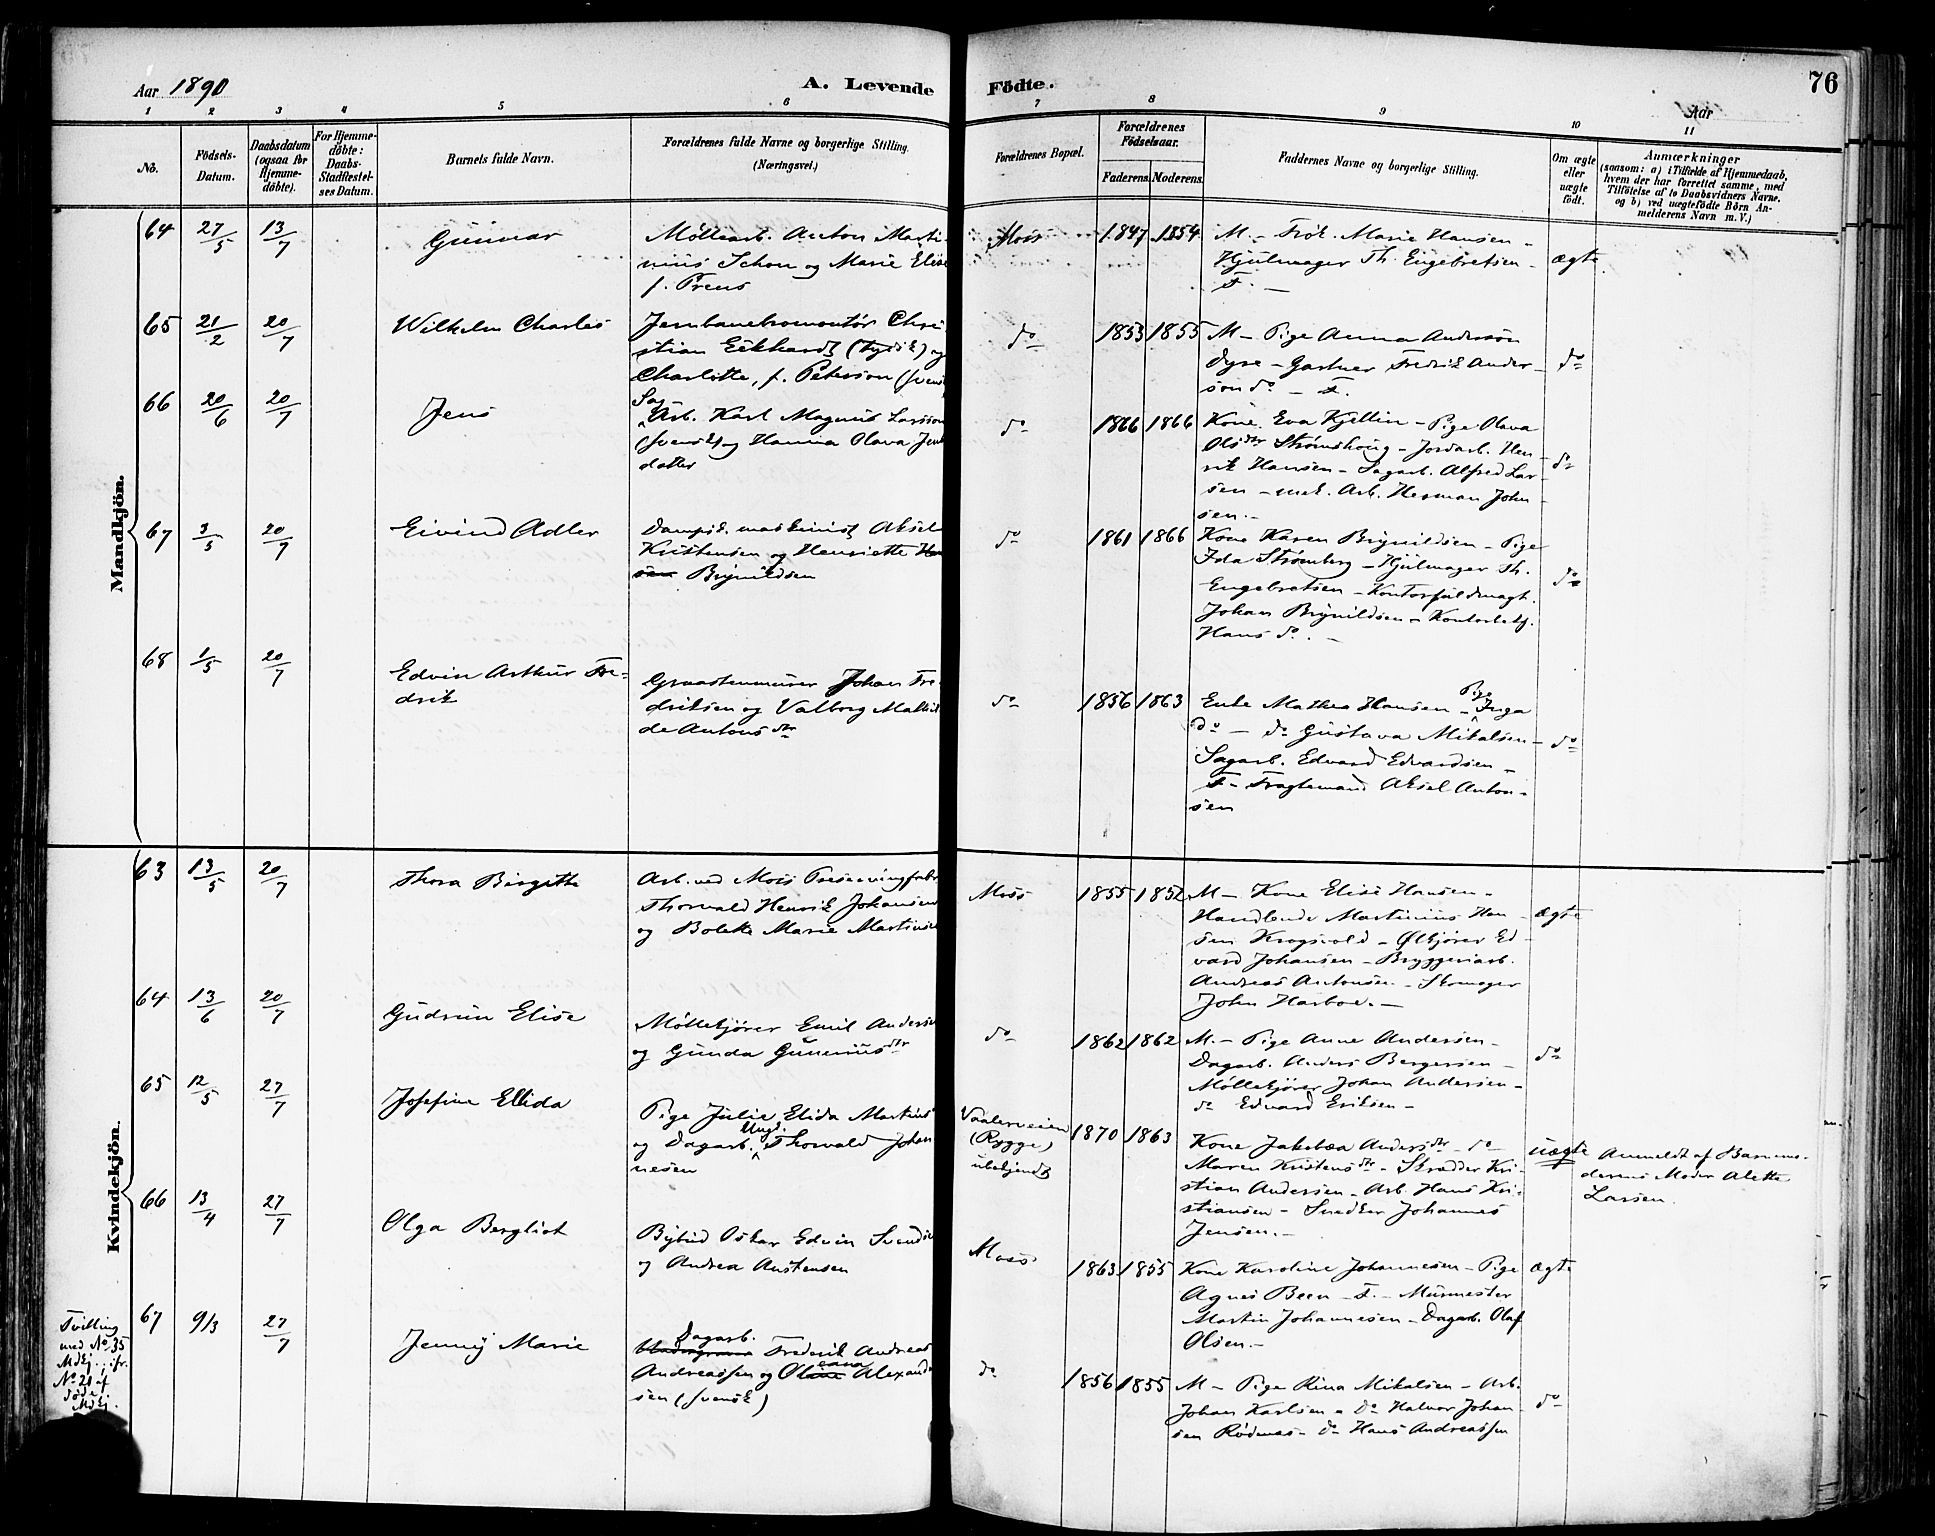 Aar 1890
A. Levende
Födte.
76
Aar
1 2 3 4 5 6 7 8 9 10 11
No.
Födsels-
Datum.
Daabsdatum
(ogsaa for
Hjemme-
döbte).
For Hjemme-
döbte:
Daabs-
Stadfæstel-
ses Datum.
Barnets fulde Navn.
Forældrenes fulde Navne og borgerlige Stilling.
(Næringsvei.)
Forældrenes Bopæl.
Forældrenes
Födselsaar.
Faderens. Moderens.
Faddernes Navne og borgerlige Stilling.
Om ægte
eller
uægte
födt.
Anmærkninger
(saasom: a) i Tilfælde af Hjemmedaab,
hvem der har forrettet samme, med
Tilföielse af to Daabsvidners Navne.
og b) ved uægtefödte Börn An-
melderens Navn m. V.)
Mandkjön.
64 27/5 13/7 Gunnar
Møllearb. Anton Marti-
nius Schou og Marie Elise
f. Prens
Moss 1847 1854
M. - Frøk. Marie Hansen -
Hjulmager Th. Engebretsen -
F. -
ægte
65 21/2 20/7 Wilhelm Charles
Jernbanebromontør Chri-
stian Eckhardt (tydsk) og
Charlotte, f. Peterson (svensk)
do 1853 1855
M - Pige Anna Anderson
Dyre - Gartner Fredrik Ander-
son do - F.
do
66 20/6 20/7 Jens
Sag-
Arb. Karl Magnus Larsson
(svensk) og Hanna Olava Jens
datter
do 1866 1866
Kone Eva Kjellin - Pige Olava
Olsdtr Strømshoug - Jordarb. Hen-
rik Hansen - Sagarb. Alfred Lar-
sen - mek. Arb. Herman John-
sen. -
do
67 3/5 20/7 Eivind Adler
Dampsk. maskinist Aksel
Kristensen og Henriette Han
sen Brynildsen
do 1861 1866
Kone Karen Brynildsen - Pige
Ida Strømberg - Hjulmager Th.
Engebretsen - Kontorfuldmægt.
Johan Brynildsen - Kontorbetj.
Hans do. -
do
68 1/5 20/7 Edvin Arthur Fre-
drik
Graastensmurer Johan Fre-
driksen og Valborg Mathil-
de Antonsdtr
do 1856 1863
Enke Mathea Hansen - Pige Inga
do - do Gustava Mikalsen -
Sagarb. Edvard Edvardsen -
F - Fragtemand Aksel Anton-
sen
do
Kvindekjön.
63 13/5 20/7 Thora Birgitte
Arb. ved Moss Preservingfabr
Thorvald Henrik Johansen
og Bolette Marie Martinsen
Moss 1855 1852
M - Kone Elise Hansen -
Handlende Martinius Han-
sen Krogsvold - Ølkjører Ed-
vard Johansen - Bryggeriarb.
Andreas Antonsen - Skomager
John Harboe. -
ægte
64 13/6 20/7 Gudrun Elise
Møllekjører Emil Andersen
og Gunda Guneriusdtr
do 1862 1862
M. - Pige Anne Andersen -
Dagarb. Anders Bergersen -
Møllekjører Johan Andersen -
do Edvard Eriksen -
do
65 12/5 27/7 Josefine Ellida
Pige Julie Elida Martins
og Dagarb. Ungk. Thorvald Johan
nesen
Vaalerveien
(Rygge)
ubekjendt
1870 1863
Kone Jakobæa Andersdtr - do
Maren Kristensdtr - Skrædder Kri-
stian Andersen - Arb. Hans Kri-
stiansen - Snedker Johannes
Jensen. -
uægte
Anmeldt af Barnemo-
derens Moder Alette
Larsen.
66 13/4 27/7 Olga Bergliot
Bybud Oskar Edvin Svendsen
og Andrea Austensen
Moss 1863 1855
Kone Karoline Johannesen - Pige
Agnes Been - F. - Murmester
Martin Johannesen - Dagarb. Olaf
Olsen. -
ægte
Tvilling
med No 35
Mdkj., jfr.
No 21 af
dødf.
Mdkj.
67 9/3 27/7 Jenny Marie
Dagarb.
Frederik Andreas
Andreassen og Oleana Alexander
sen (svensk)
do 1856 1855
M - Pige Rina Mikalsen - Arb.
Johan Karlsen - do Halvor Johan-
sen Rødenes - do Hans Andreassen
do